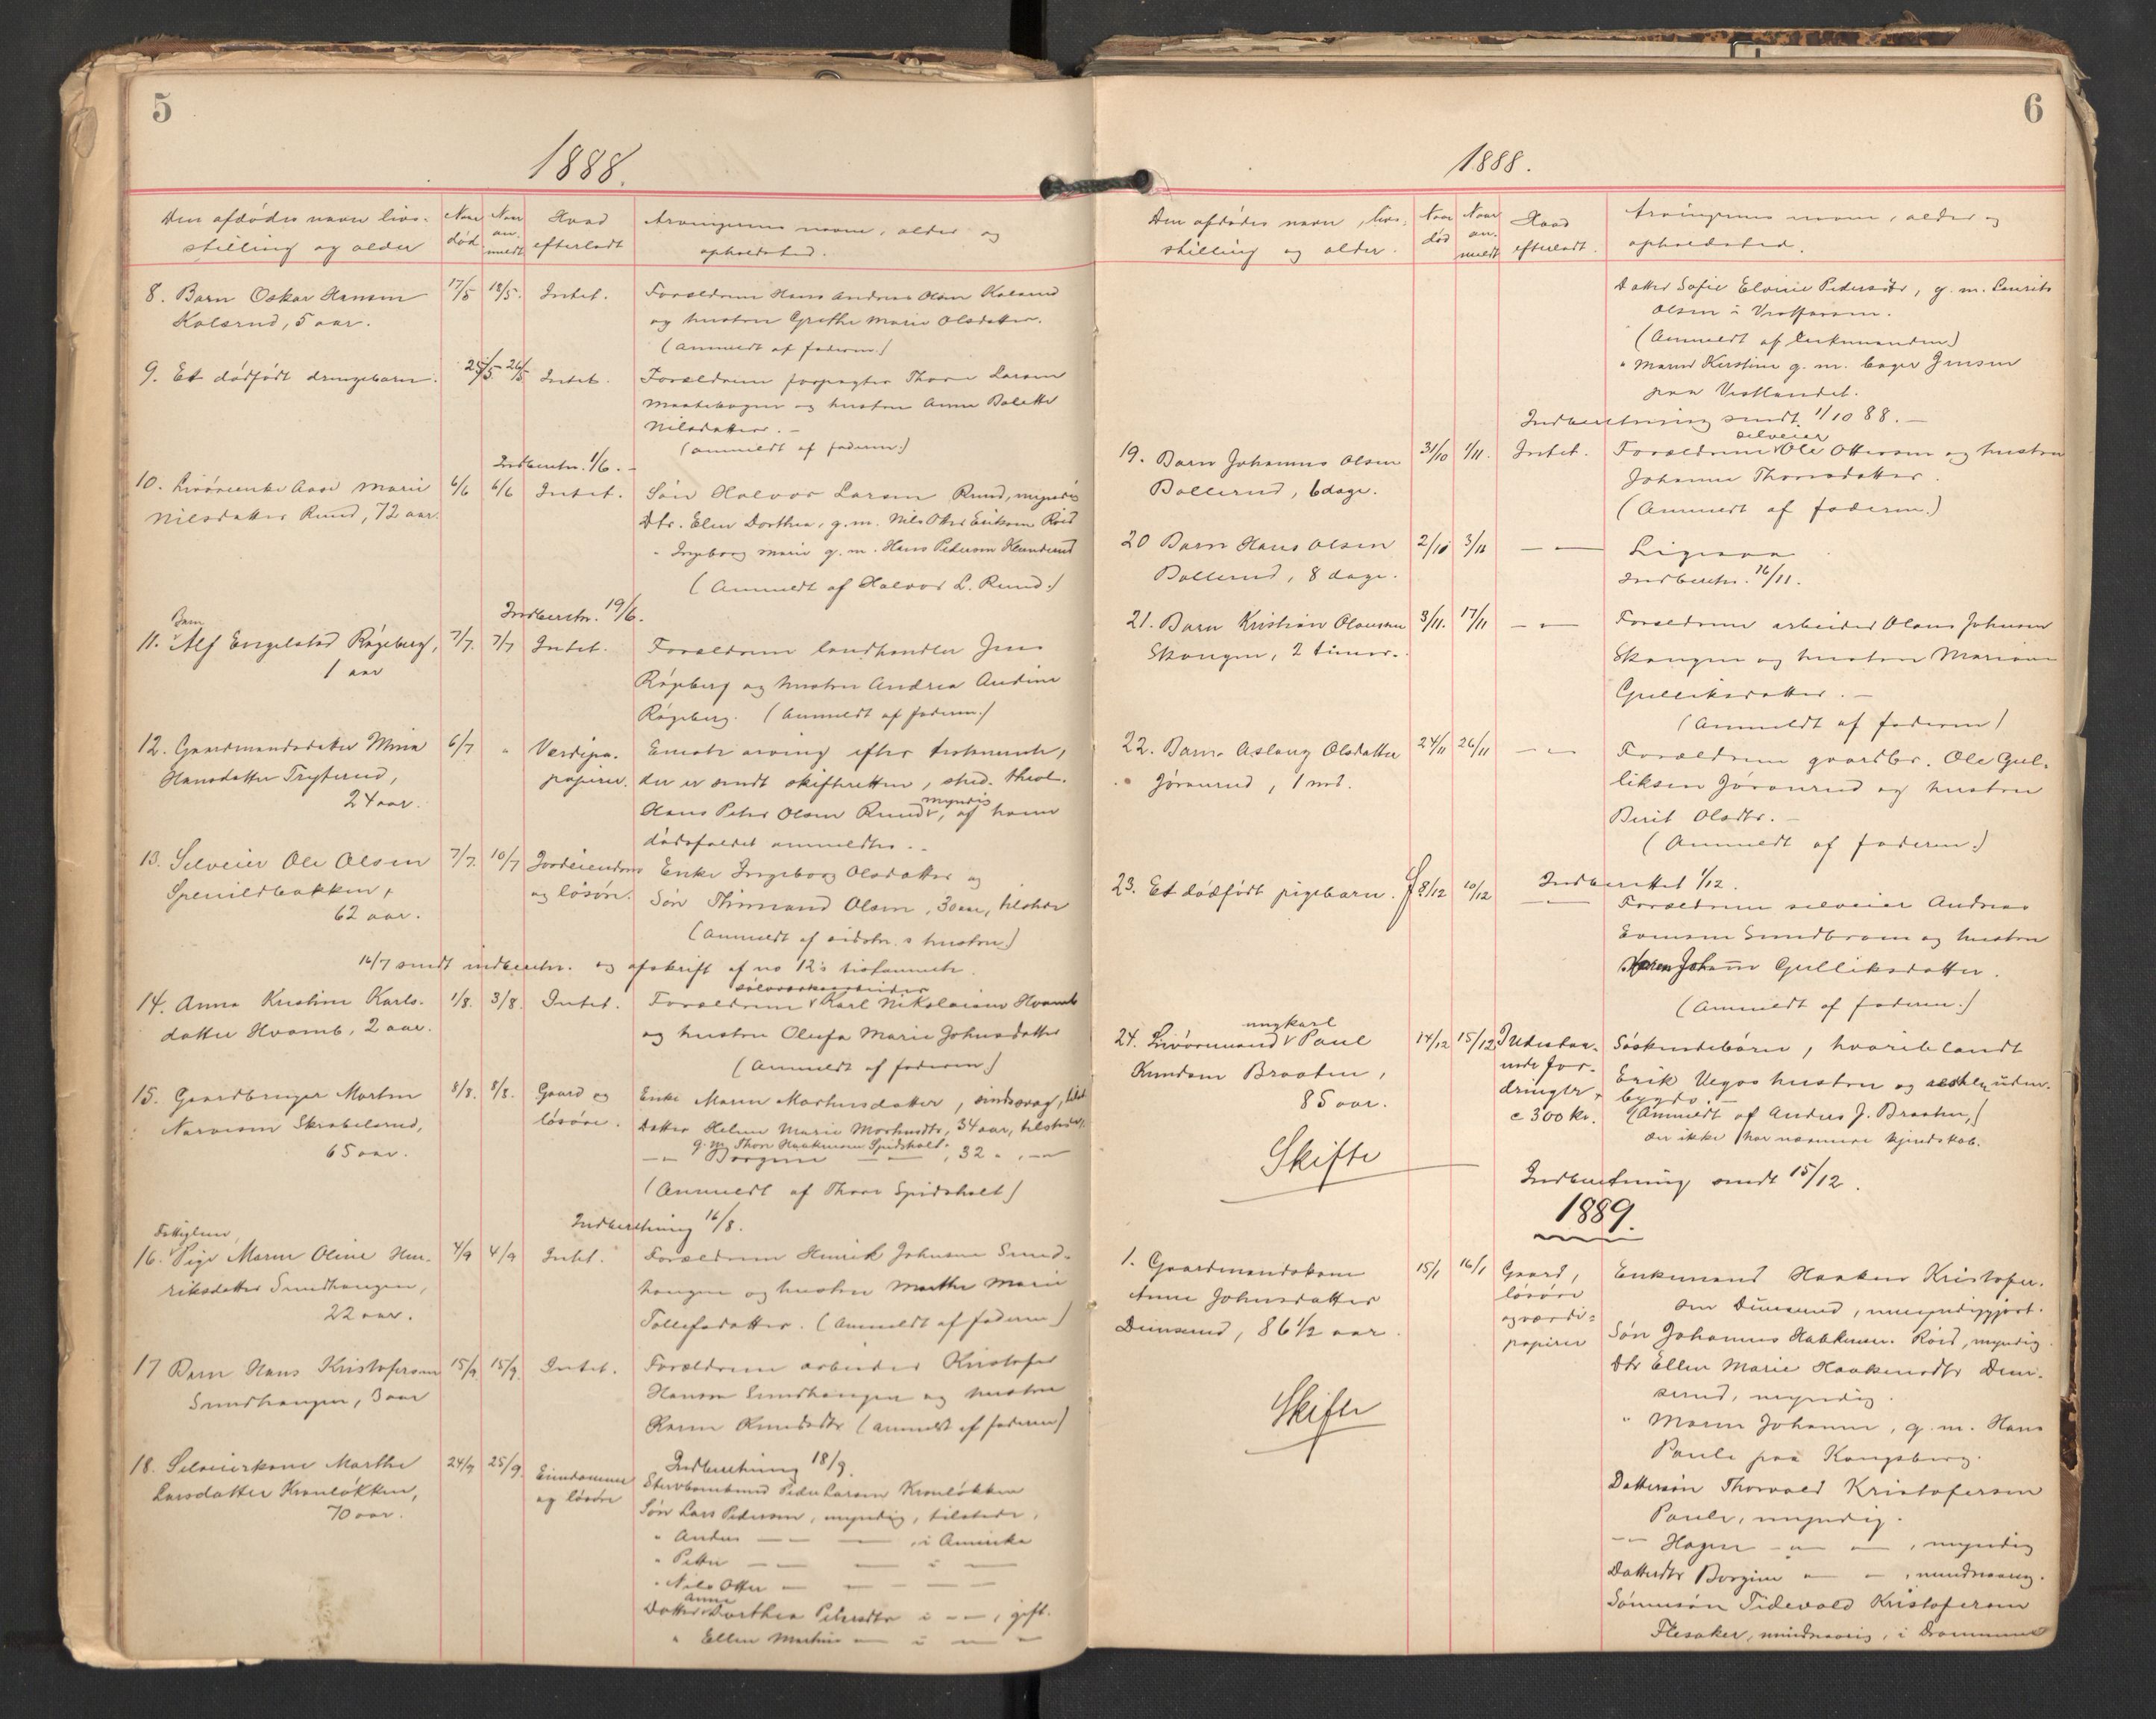 5
1888.
Den afdødes navn livs-
stilling og alder
Naar
død.
Naar
an-
meldt
Hvad
efterladt
Arvingernes navne, alder og
opholdssted.
8. Barn Oskar Hansen
Kolsrud, 5 aar.
17/5
18/5.
Intet.
Forældrene Hans Andreas Olsen Kolsrud
og hustru Grethe Marie Olsdatter.
(Anmeldt af faderen)
9. Et dødfødt drengebarn.
25/5
26/5
Intet.
Forældrene forpagter Thore Larsen
og hustru Anne Bolette
Nilsdatter. –
(anmeldt af faderen.)
Indberetn. 1/6. –
10. Livørenke Aase Marie
Nilsdatter Rund, 72 aar.
6/6
6/6
Intet.
Søn Halvor Larsen Rund, myndig
Dtr. Elen Dorthea, g. m. Nils Otter Eriksen Roid
" Ingeborg Marie g. m. Hans Pedersen
(Anmeldt af Halvor L. Rund.)
Indberetn. 19/6.
Barn
11. Alf Engelstad Røgeberg,
1 aar
7/7.
7/7
Intet.
Forældrene landhandler Jens
Røgeberg og hustru Andrea Andine
Røgeberg. (Anmeldt af faderen.)
12. Gaardmandsdatter Mina
Hansdatter Tryterud,
24 aar.
6/7
"
Værdipa-
papirer.
Eneste arving efter testamente,
der er sendt skifteretten, stud. theol.
Hans Peter Olsen Rund, myndig, af ham
dødsfaldet anmeldtes. –
13. Selveier Ole Olsen
Spenildbakken,
62 aar.
7/7.
10/7
Jordeiendom
og løsøre.
Enke Ingeborg Olsdatter og
Søn Olsen, 30 aar, tilstede
(Anmeldt af hustru.)
16/7 sendt indberetn. og afskrift af no 12's testamente.
14. Anna Kristine Karls-
datter Hvamb, 2 aar.
1/8.
3/8.
Intet.
sølvverksarbeider
Forældrene Karl Nikolaisen Hvamb
og hustru Olufa Marie Johnsdatter
(Anmeldt af faderen)
15. Gaardbruger Morten
Narvesen Skrabelsrud,
65 aar.
8/8.
8/8.
Gaard og
løsøre.
Enke Maren Mortensdatter, sindssvag, tilst
Datter Helene Marie Mortensdtr, 34 aar, tilstede,
g. m. Thore Haakensen Spidsholt.
– " – Borgine – – , 32 " , – " –
(Anmeldt af Thore Spidsholt)
Indberetning 16/8.
Fattiglem,
16. Pige Maren Oline Hen-
riksdatter Sundhaugen,
22 aar.
4/9
4/9
Intet.
Forældrene Henrik Johnsen Sund-
haugen og hustru Marthe Marie
Tollefsdatter. (Anmeldt af faderen)
17 Barn Hans Kristofersen
Sundhaugen, 3 aar
15/9.
15/9.
Intet.
Forældrene arbeider Kristofer
Hansen Sundhaugen og hustru
Karen Knudsdtr (anmeldt af faderen)
Indberetning 18/9.
18. Selveierkone Marthe
Larsdatter Kronløkken,
70 aar.
24/9
25/9.
Eiendommer
og løsøre
Peder Larsen Kronløkken
Søn Lars Pedersen, myndig, tilstede,
" Anders – – — , i Amerika
" Petter – – — i —
" Nils Otter – — — —
Anne
Datter Dorthea Pedersdtr i – – , gift.
" Ellen Martine — i — –
6
1888.
Den afdødes navn, livs-
stilling og alder.
Naar
død
Naar
an-
meldt
Hvad
efterladt.
Arvingernes navne, alder og
opholdssted.
Datter Sofie Elvine Pedersdtr, g. m. Laurits
Olsen i Vestfossen.
(Anmeldt af Enkemanden)
" Maren Kirstine g. m. bager Jensen
paa Vestlandet.
Indberetning sendt 1/10 88. –
19. Barn Johannes Olsen
Bollerud, 6 dage.
31/10
1/11.
Intet.
selveier
Forældrene Ole Ottersen og hustru
Johanne Thorsdatter.
(Anmeldt af faderen.)
20 Barn Hans Olsen
Bollerud, 8 dage.
2/11
3/11
– –
Ligesaa
Indberetn. 16/11.
21. Barn Kristian Olausen
Skaugen, 2 timer.
3/11.
17/11
– " –
Forældrene arbeider Olaus Johnsen
Skaugen og hustru Mariane
Gulliksdatter. –
(Anmeldt af faderen)
22. Barn Aslaug Olsdatter
Jøranrud, 1 md.
24/11
26/11
– " –
Forældrene gaardbr. Ole Gul-
liksen Jøranrud og hustru
Berit Olsdtr. –
(Anmeldt af faderen.)
Indberettet 1/12.
23. Et dødfødt pigebarn.
8/12
10/12
– " –
Forældrene selveier Andreas
Evensen Sundbraaten og hustru
Maren Johanne Gulliksdatter.
(Anmeldt af faderen.)
ungkarl
24. Livøremand Paul
Knudsen Braaten,
85 aar.
Skifte
14/12
15/12
Udestaa-
ende for-
dringer,
c 300 kr.
Søskendebørn, hvoriblandt
Erik Vegos hustru og uden-
bygds. –
(Anmeldt af Anders J. Braaten,)
der ikke har nærmere kjendskab.
Indberetning sendt 15/12.
1889.
1. Gaardmandskone
Anne Johnsdatter
Dimsrud, 86 1/2 aar.
Skifte
15/1
16/1
Gaard,
løsøre
og værdi-
papirer
Enkemand Haaken Kristofer-
sen Dimsrud, umyndiggjort.
Søn Johannes Haakensen Roid, myndig
Dtr Ellen Marie Haakensdtr Dim-
srud, myndig.
" Maren Johanne, g. m. Hans
Paule paa Kongsberg.
Dattersøn Thorvald Kristofersen
Paule, myndig.
– " – Hagen – " – — , myndig
Datterdtr Borgine – " – – , mindreaarig.
Sønnesøn Tidevald Kristofersen
Flesaker, mindreaarig, i Drammen